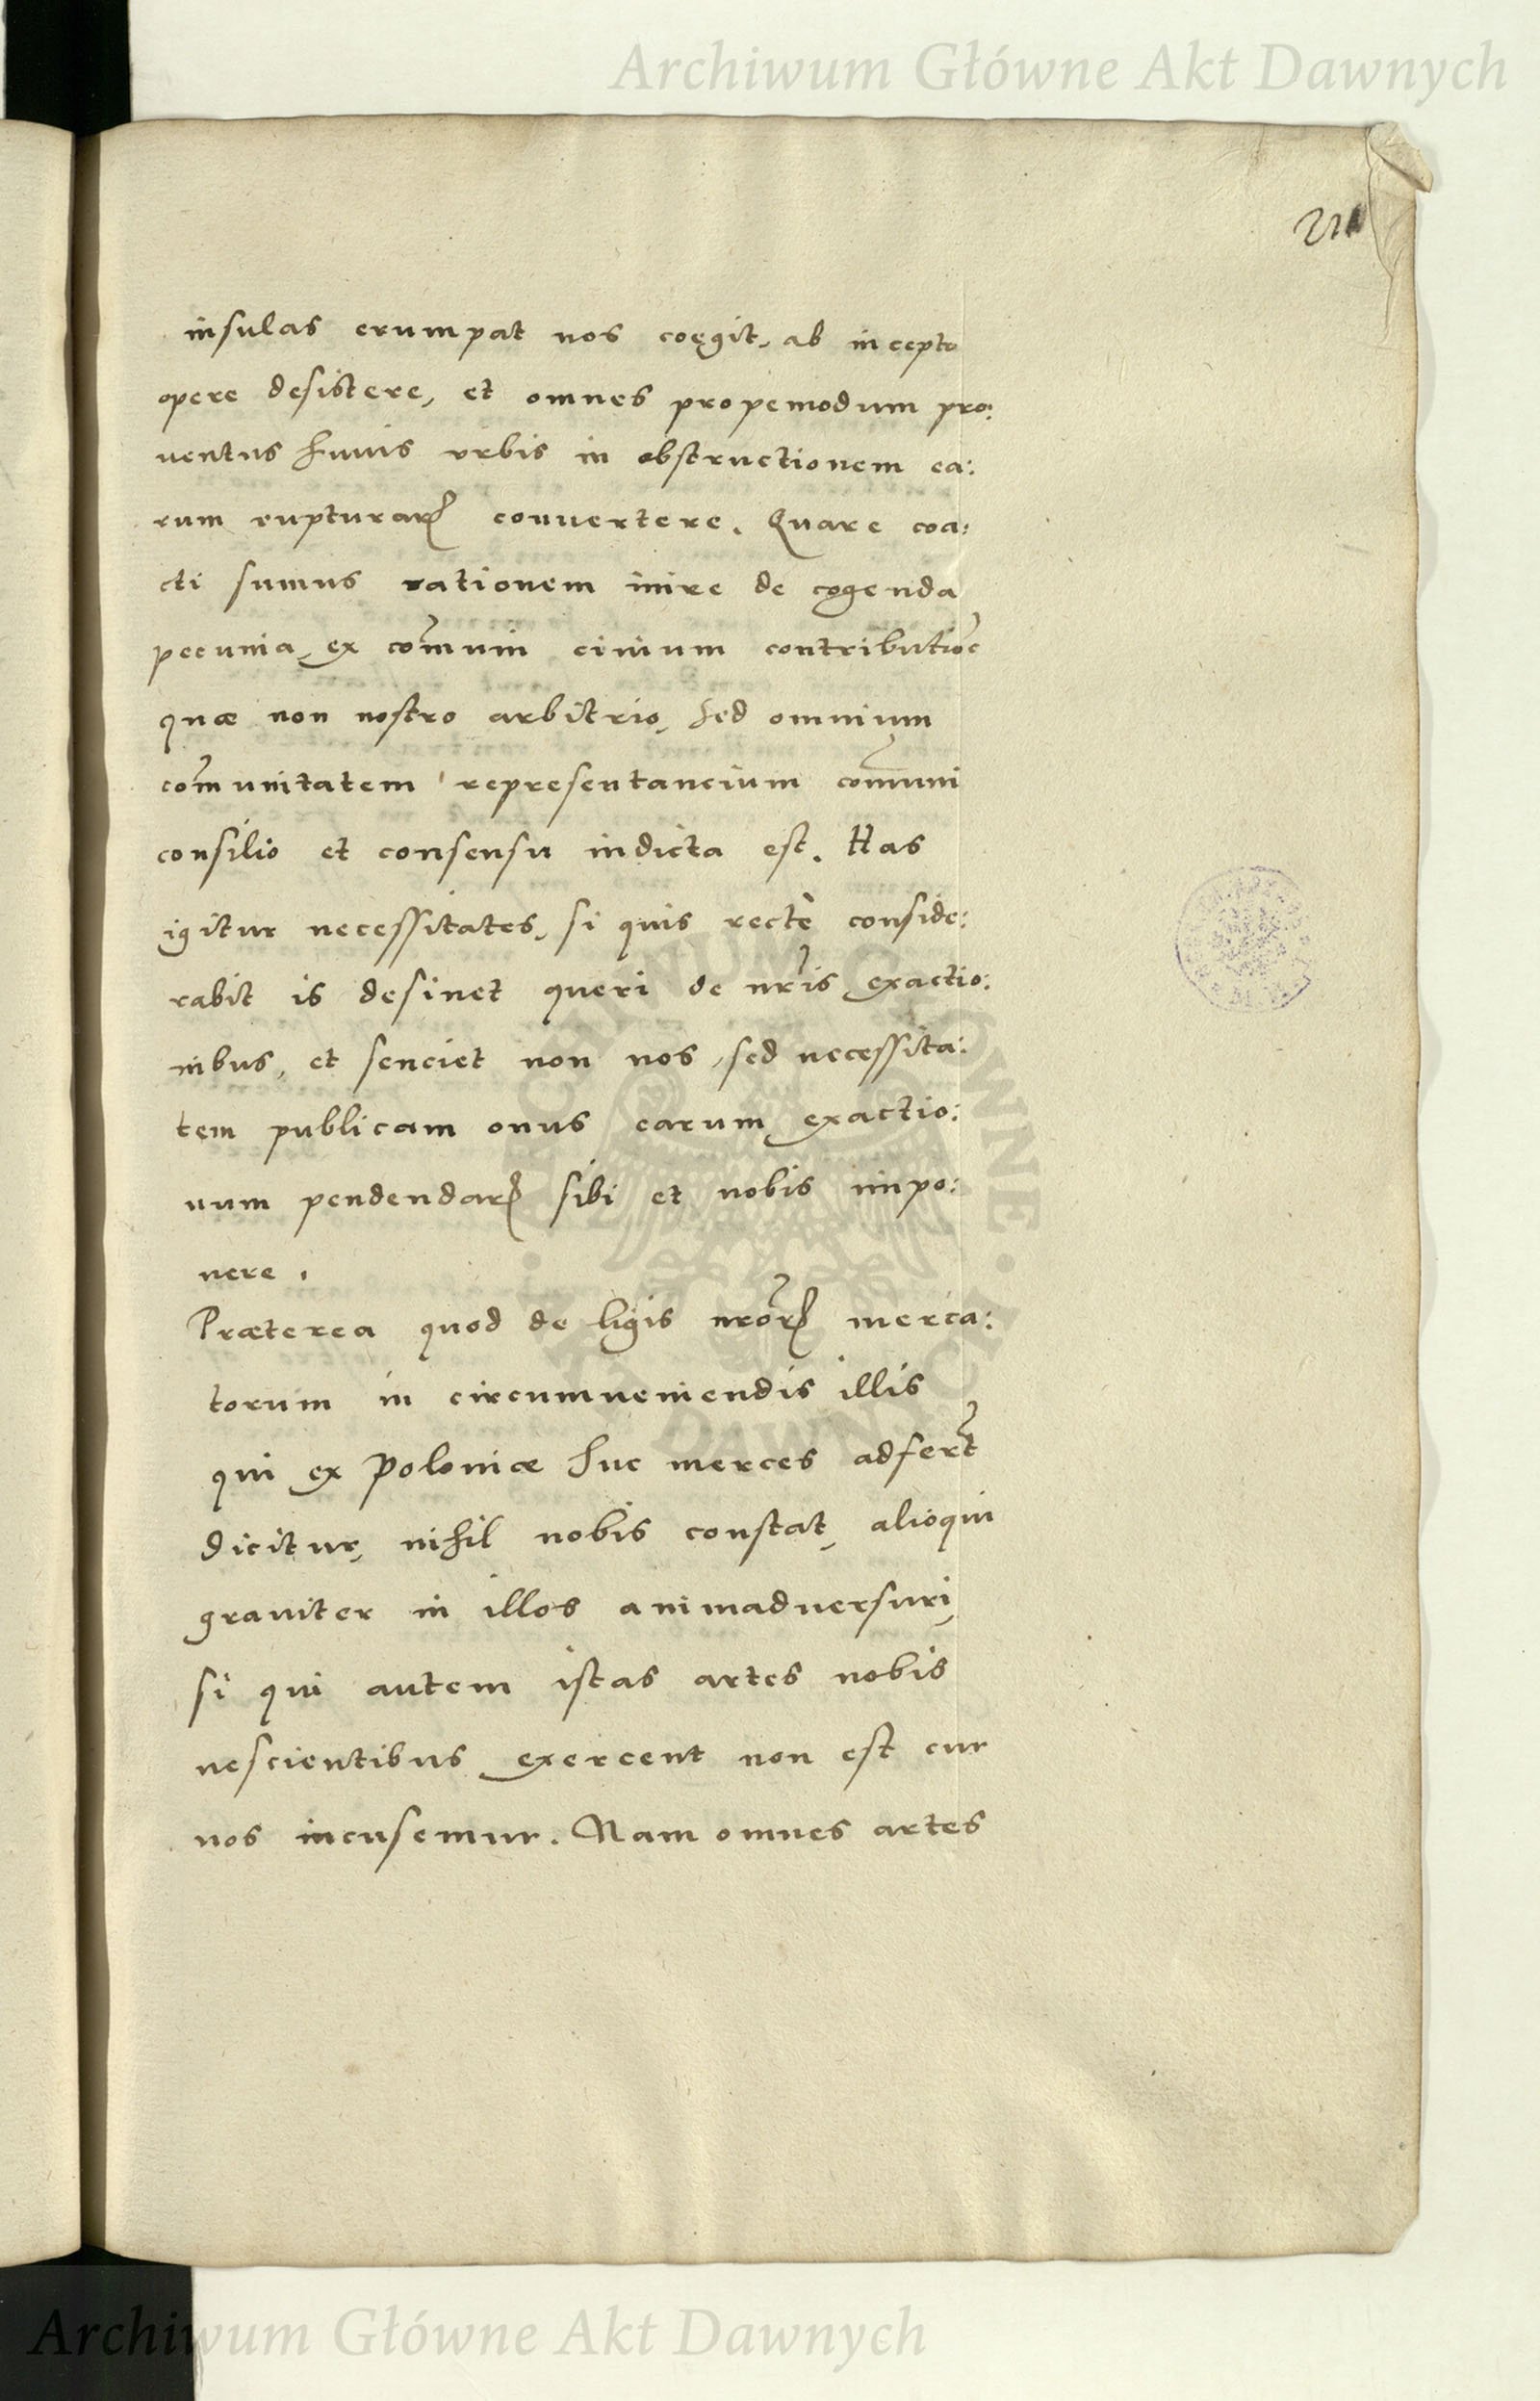 Archiwum Główne Akt Dawnych
211
insulas erumpat nos coęgit, ab incepto
opere desistere, et omnes propemodum pro:
uentus huius vrbis in obstructionem ea:
rum rupturarꝝ conuertere. Quare coa:
cti sumus rationem inire de cogenda
pecunia, ex com̃uni ciuium contributiõe
quæ non nostro arbitrio, sed omnium
com̃unitatem representancium com̃uni
consilio et consensu indicta est. Has
igitur necessitates, si quis rectè conside:
rabit is desinet queri de nr̃is exactio:
nibus, et senciet non nos, sed necessita:
tem publicam onus earum exactio:
num pendendarꝝ sibi et nobis impo:
nere.
Præterea quod de ligis nr̃orꝝ merca:
torum in circumueniendis illis
qui ex Poloniæ huc merces adfer̃t
dicitur, nihil nobis constat, alioqui
grauiter in illos animaduersuri,
si qui autem istas artes nobis
nescientibus exercent non est cur
nos incusemur. Nam omnes artes
ARCHIWUM GŁÓWNE
AKT DAWNYCH
Archiwum Główne Akt Dawnych